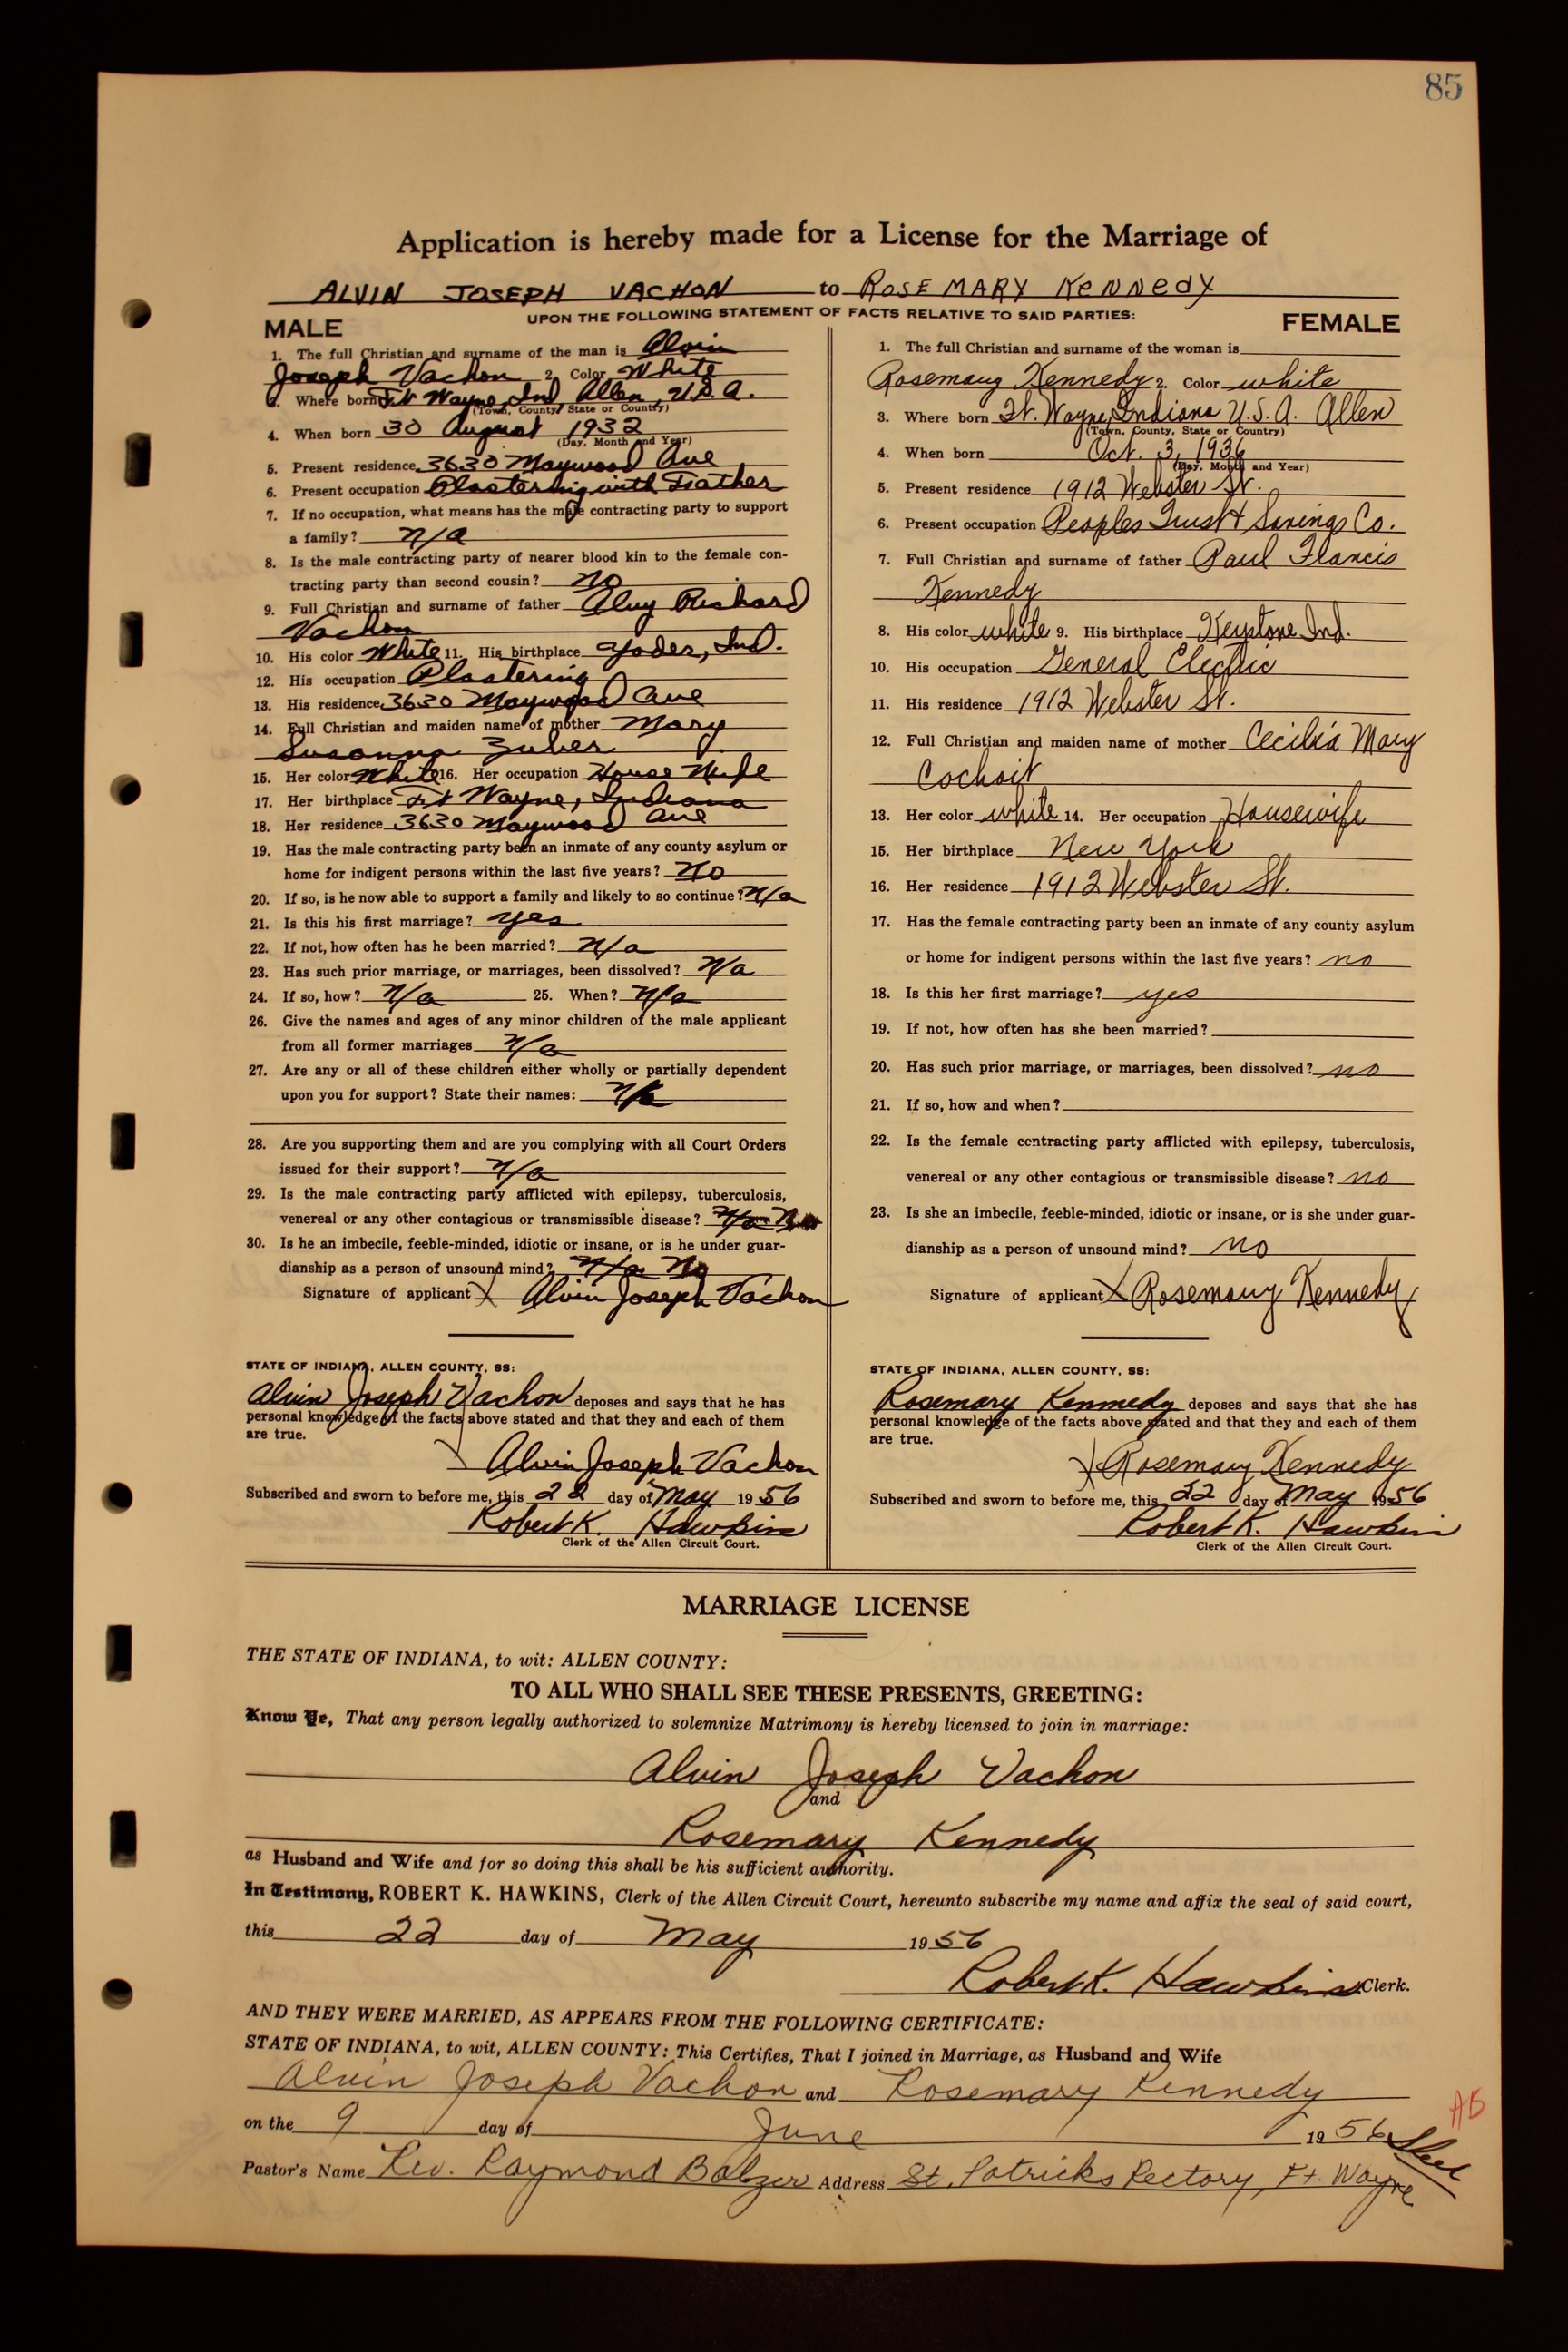 85
Application is hereby made for a License for the Marriage of
ALVIN JOSEPH VACHON to ROSEMARY KENNEDY
UPON THE FOLLOWING STATEMENT OF FACTS RELATIVE TO SAID PARTIES:
MALE
1. The full Christian and surname of the man is Alvin
Joseph Vachon 2. Color White
3. Where born Ft Wayne, Ind Allen, U.S.A.
(Town, County, State or Country)
4. When born 30 August 1932
(Day, Month and Year)
5. Present residence 3630 Maywood Ave
6. Present occupation Plastering with Father
7. If no occupation, what means has the male contracting party to support
a family? n/a
8. Is the male contracting party of nearer blood kin to the female con-
tracting party than second cousin? no
9. Full Christian and surname of father Richard
Vachon
10. His color White 11. His birthplace Yoder, Ind.
12. His occupation Plastering
13. His residence 3630 Maywood Ave
14. Full Christian and maiden name of mother Mary
Susanna Zuber
15. Her color White 16. Her occupation House Wife
17. Her birthplace Ft Wayne, Indiana
18. Her residence 3630 Maywood Ave
19. Has the male contracting party been an inmate of any county asylum or
home for indigent persons within the last five years? No
20. If so, is he now able to support a family and likely to so continue? N/a
21. Is this his first marriage? yes
22. If not, how often has he been married? N/a
23. Has such prior marriage, or marriages, been dissolved? N/a
24. If so, how? N/a 25. When? N/a
26. Give the names and ages of any minor children of the male applicant
from all former marriages N/a
27. Are any or all of these children either wholly or partially dependent
upon you for support? State their names: N/a
28. Are you supporting them and are you complying with all Court Orders
issued for their support? N/a
29. Is the male contracting party afflicted with epilepsy, tuberculosis,
venereal or any other contagious or transmissible disease? N/a No
30. Is he an imbecile, feeble-minded, idiotic or insane, or is he under guar-
dianship as a person of unsound mind? N/a No
Signature of applicant X Alvin Joseph Vachon
STATE OF INDIANA, ALLEN COUNTY, SS:
Alvin Joseph Vachon deposes and says that he has
personal knowledge of the facts above stated and that they and each of them
are true.
X Alvin Joseph Vachon
Subscribed and sworn to before me, this 22 day of May 1956
Robert K. Hawkins
Clerk of the Allen Circuit Court.
FEMALE
1. The full Christian and surname of the woman is
Rosemary Kennedy 2. Color white
3. Where born Ft. Wayne, Indiana U.S.A. Allen
(Town, County, State or Country)
4. When born Oct. 3, 1936
(Day, Month and Year)
5. Present residence 1912 Webster St.
6. Present occupation Peoples Trust & Savings Co.
7. Full Christian and surname of father Paul Francis
Kennedy
8. His color white 9. His birthplace Keystone Ind.
10. His occupation General Electric
11. His residence 1912 Webster St.
12. Full Christian and maiden name of mother Cecilia Mary
Cochoit
13. Her color white 14. Her occupation Housewife
15. Her birthplace New York
16. Her residence 1912 Webster St.
17. Has the female contracting party been an inmate of any county asylum
or home for indigent persons within the last five years? no
18. Is this her first marriage? yes
19. If not, how often has she been married?
20. Has such prior marriage, or marriages, been dissolved? no
21. If so, how and when?
22. Is the female contracting party afflicted with epilepsy, tuberculosis,
venereal or any other contagious or transmissible disease? no
23. Is she an imbecile, feeble-minded, idiotic or insane, or is she under guar-
dianship as a person of unsound mind? no
Signature of applicant X Rosemary Kennedy
STATE OF INDIANA, ALLEN COUNTY, SS:
Rosemary Kennedy deposes and says that she has
personal knowledge of the facts above stated and that they and each of them
are true.
X Rosemary Kennedy
Subscribed and sworn to before me, this 22 day of May 1956
Robert K. Hawkins
Clerk of the Allen Circuit Court.
MARRIAGE LICENSE
THE STATE OF INDIANA, to wit: ALLEN COUNTY:
TO ALL WHO SHALL SEE THESE PRESENTS, GREETING:
Know Ye, That any person legally authorized to solemnize Matrimony is hereby licensed to join in marriage:
Alvin Joseph Vachon
and
Rosemary Kennedy
as Husband and Wife and for so doing this shall be his sufficient authority.
In Testimony, ROBERT K. HAWKINS, Clerk of the Allen Circuit Court, hereunto subscribe my name and affix the seal of said court,
this 22 day of May 1956
Robert K. Hawkins Clerk.
AND THEY WERE MARRIED, AS APPEARS FROM THE FOLLOWING CERTIFICATE:
STATE OF INDIANA, to wit, ALLEN COUNTY: This Certifies, That I joined in Marriage, as Husband and Wife
Alvin Joseph Vachon and Rosemary Kennedy
on the 9 day of June 1956
Pastor's Name Rev. Raymond Balzer Address St. Patricks Rectory, Ft. Wayne